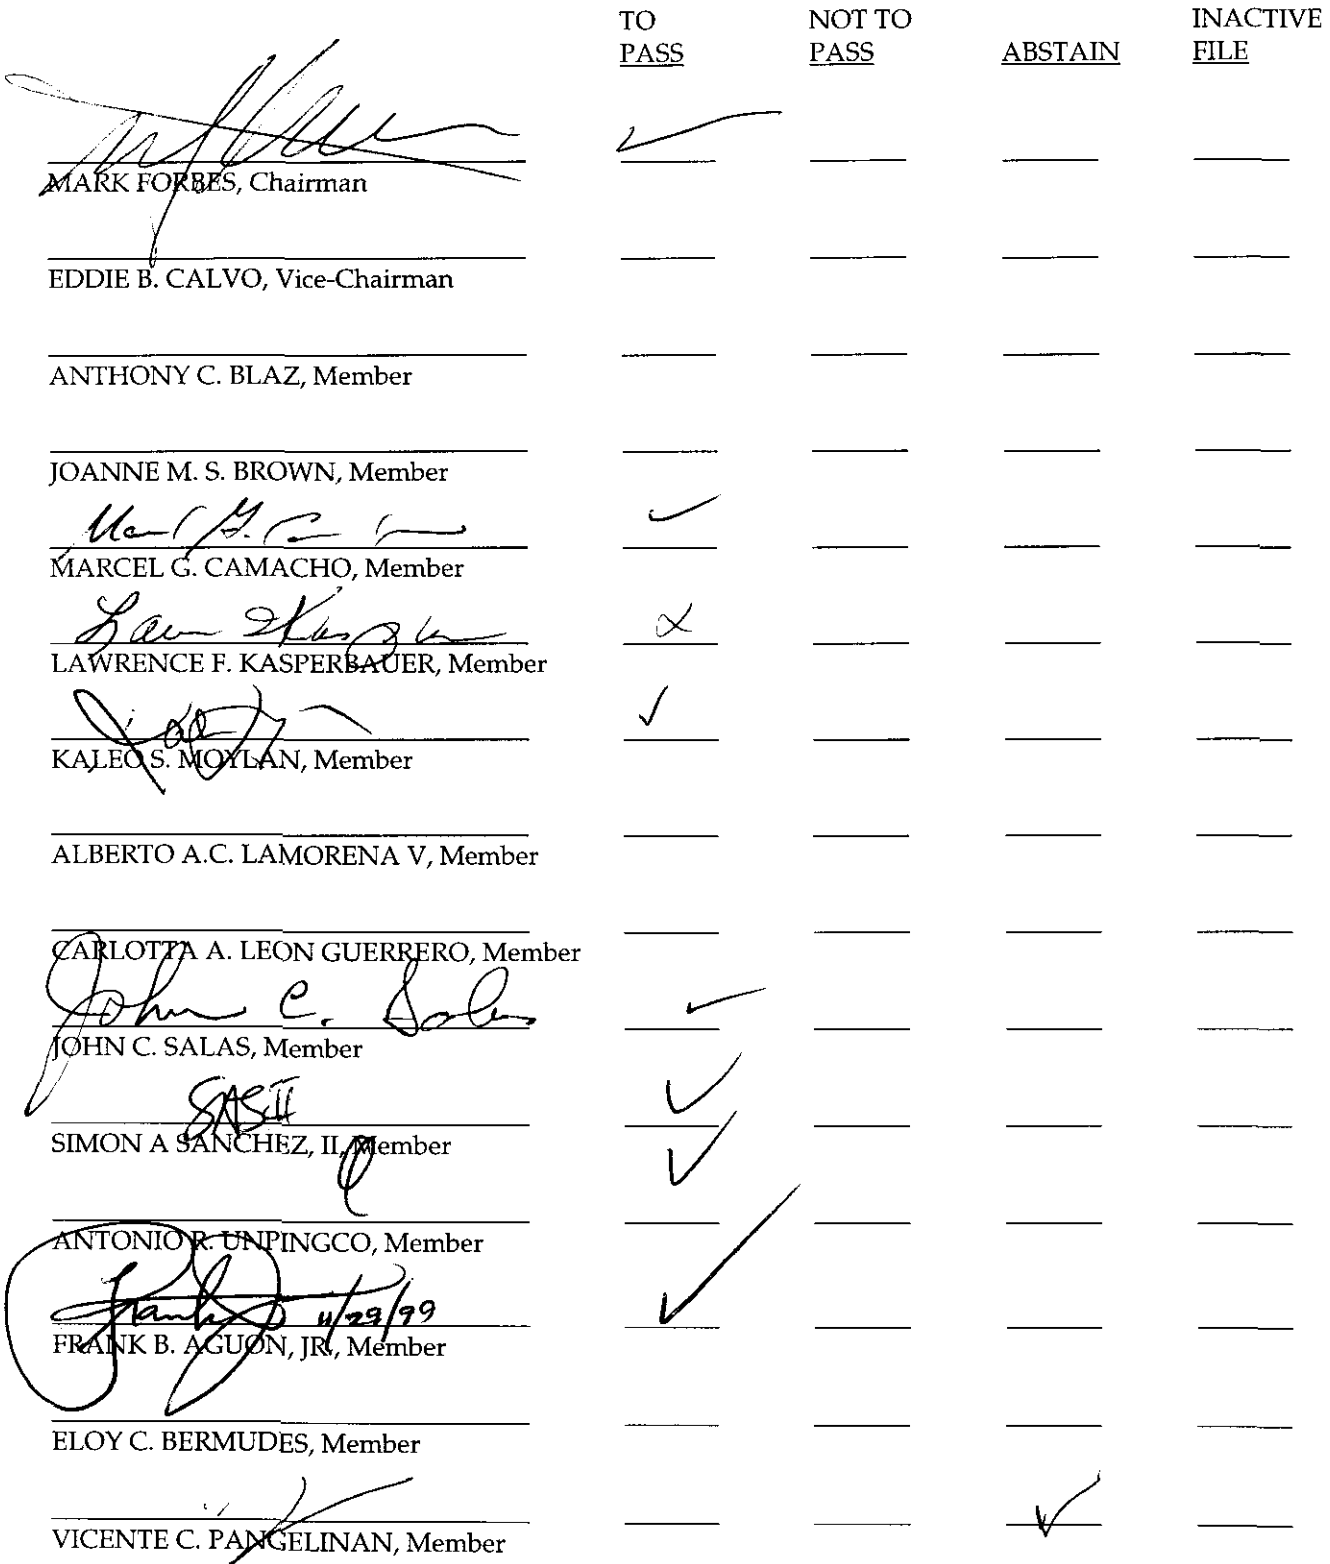 TO PASS NOT TO PASS ABSTAIN INACTIVE FILE
MARK FORBES, Chairman
EDDIE B. CALVO, Vice-Chairman
ANTHONY C. BLAZ, Member
JOANNE M. S. BROWN, Member
MARCEL G. CAMACHO, Member
LAWRENCE F. KASPERBAUER, Member
KALEO S. MOYLAN, Member
ALBERTO A.C. LAMORENA V, Member
CARLOTTA A. LEON GUERRERO, Member
John C. Salas
JOHN C. SALAS, Member
SASII
SIMON A SANCHEZ, II, Member
ANTONIO R. UNPINGCO, Member
Frank 11/29/99
FRANK B. AGUON, JR., Member
ELOY C. BERMUDES, Member
VICENTE C. PANGELINAN, Member